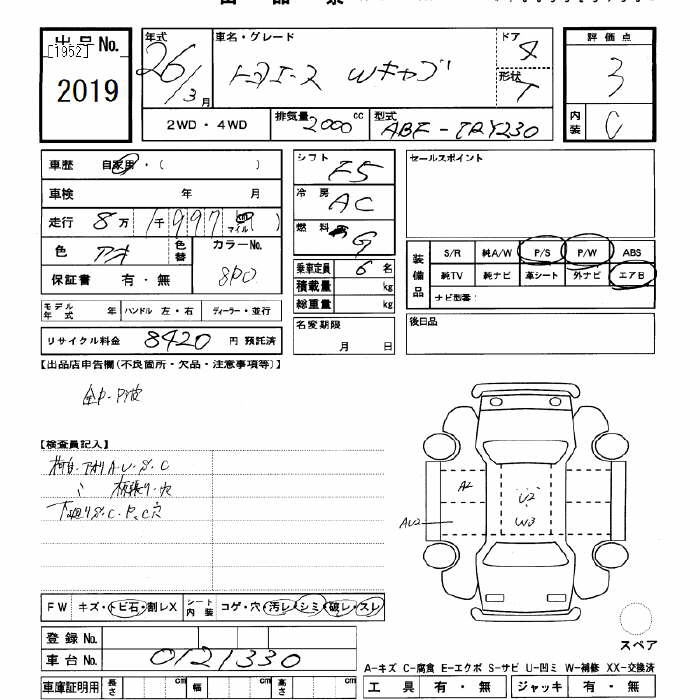 出品票
出品No.
[1952]
2019
年式
26/3月
車名・グレード
トヨエース Wキャブ
ドア
4
形状
T
評価点
3
内装
C
2WD・4WD
排気量 2000 cc
型式 ABF-TRY230
車歴 自家用・( )
車検 年 月
走行 8万1千997 km マイル
色 アオ
色替
カラーNo.
8P0
保証書 有・無
モデル年式 年
ハンドル 左・右
ディーラー・並行
リサイクル料金 8420 円 預託済
シフト F5
冷房 AC
燃料 G
乗車定員 6名
積載量 kg
総重量 kg
名変期限
月 日
セールスポイント
装備品
S/R 純A/W P/S P/W ABS
純TV 純ナビ 革シート 外ナビ エアB
ナビ型番:
後日品
【出品店申告欄(不良箇所・欠品・注意事項等)】
【検査員記入】
A・U・S・C
下廻りS・C・P、C穴
A2
AU2
U2
W3
FW キズ・トビ石・割レX
シート内装 コゲ・穴・汚レ・シミ・破レ・スレ
登録No.
車台No. 0121330
車庫証明用 長さ cm 幅 cm 高さ cm
スペア
A-キズ C-腐食 E-エクボ S-サビ U-凹ミ W-補修 XX-交換済
工具 有・無 ジャッキ 有・無